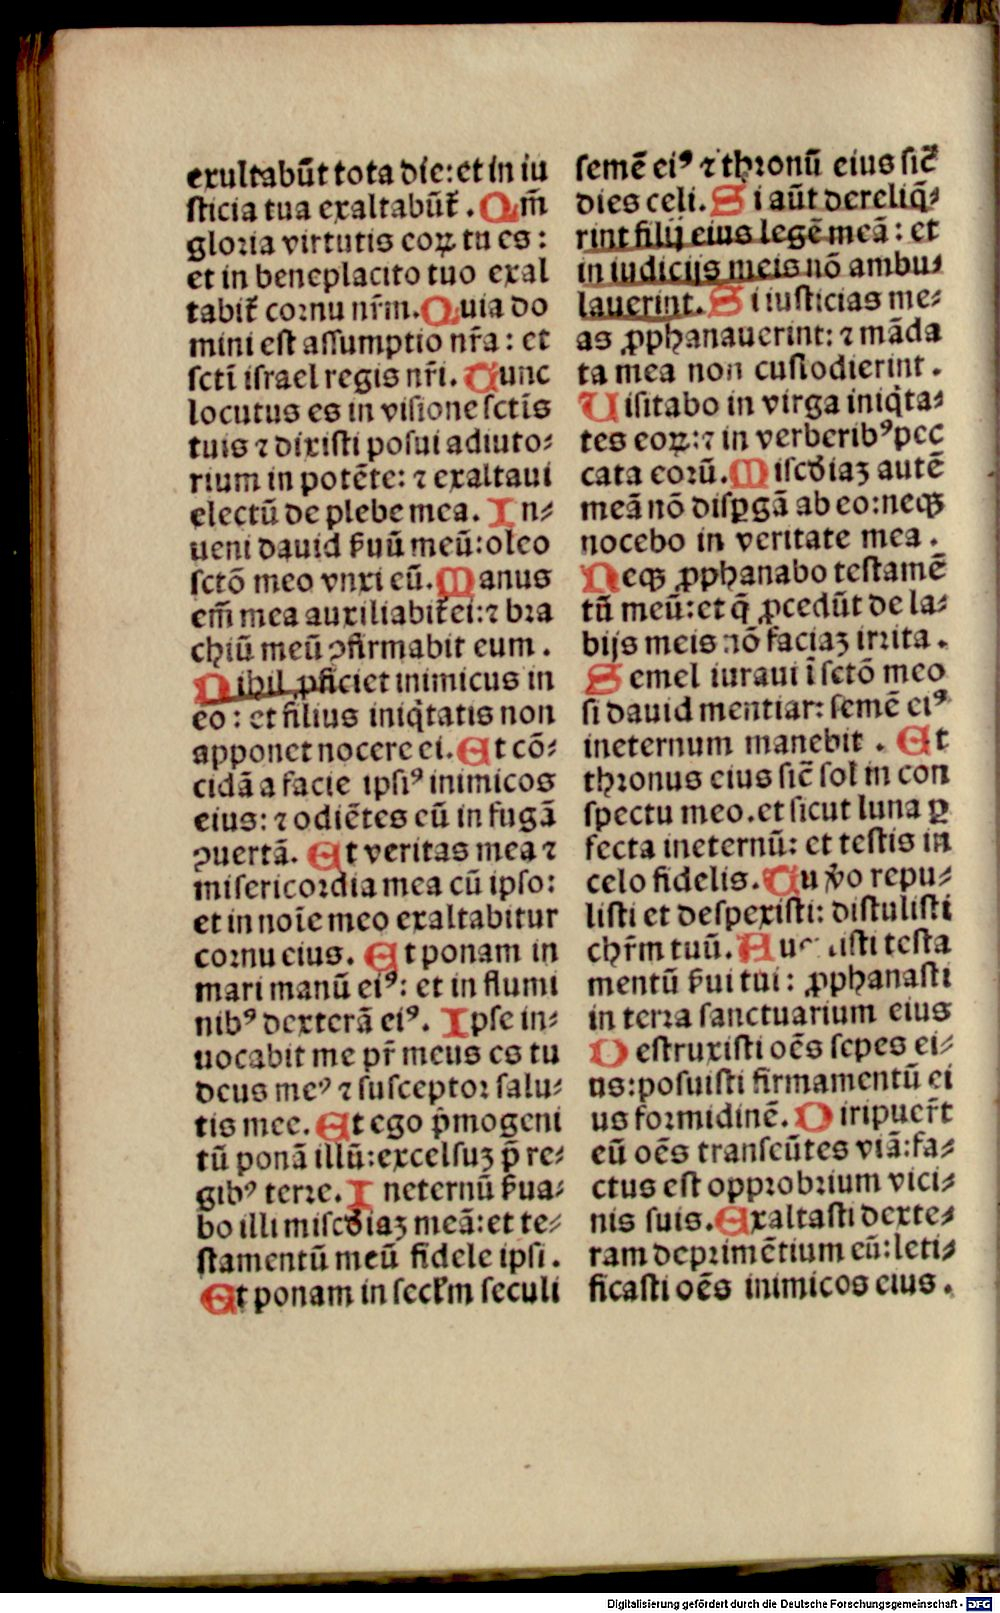 exultabūt tota die: et in iu
sticia tua exaltabūt᷑. Qm̄
gloria virtutis eoꝝ tu es:
et in beneplacito tuo exal
tabit᷑ cornu nr̄m. Quia do
mini est assumptio nr̄a: et
sctī israel regis nr̄i. Tunc
locutus es in visione sctīs
tuis ⁊ dixisti posui adiuto⸗
rium in potēte: ⁊ exaltaui
electū de plebe mea. In⸗
ueni dauid ẜuū meū: oleo
sctō meo vnxi eū. Manus
em̄ mea auxiliabit᷑ ei: ⁊ bra
chiū meū ꝯfirmabit eum.
Nihil ꝓficiet inimicus in
eo: et filius iniq̇tatis non
apponet nocere ei. Et cō⸗
cidā a facie ipsiꝰ inimicos
eius: ⁊ odiētes eū in fugā
ꝯuertā. Et veritas mea ⁊
misericordia mea cū ipso:
et in noīe meo exaltabitur
cornu eius. Et ponam in
mari manū eiꝰ: et in flumi
nibꝰ dexterā eiꝰ. Ipse in⸗
uocabit me pr̄ meus es tu
deus meꝰ ⁊ susceptor salu⸗
tis mee. Et ego pͥmogeni
tū ponā illū: excelsuꝫ p̄ re⸗
gibꝰ terre. In eternū ẜua⸗
bo illi miscd̓iaꝫ meā: et te⸗
stamentū meū fidele ipsi.
Et ponam in secl̓m seculi
semē eiꝰ ⁊ thronū eius sic̄
dies celi. Si aūt dereliq̄⸗
rint filij eius legē meā: et
in iudicijs meis nō ambu⸗
lauerint. Si iusticias me⸗
as ꝓphanauerint: ⁊ māda
ta mea non custodierint.
Uisitabo in virga iniq̇ta⸗
tes eoꝝ: ⁊ in verberibꝰ pec
cata eorū. Miscd̓iaꝫ autē
meā nō disꝑgā ab eo: neqꝫ
nocebo in veritate mea.
Neqꝫ ꝓphanabo testamē
tū meū: et q̄ ꝓcedūt de la⸗
bijs meis nō faciaꝫ irrita.
Semel iuraui ī sctō meo
si dauid mentiar: semē eiꝰ
ineternum manebit. Et
thronus eius sic̄ sol in con
spectu meo. et sicut luna ꝑ
fecta ineternū: et testis in
celo fidelis. Tu v̓o repu⸗
listi et despexisti: distulisti
chr̄m tuū. Auertisti testa
mentū ẜui tui: ꝓphanasti
in terra sanctuarium eius
Destruxisti oēs sepes ei⸗
us: posuisti firmamentū ei
us formidinē. Diripuer̄t
eū oēs transeūtes viā: fa⸗
ctus est opprobrium vici⸗
nis suis. Exaltasti dexte⸗
ram deprimētium eū: leti⸗
ficasti oēs inimicos eius.
Digitalisierung gefördert durch die Deutsche Forschungsgemeinschaft - DFG